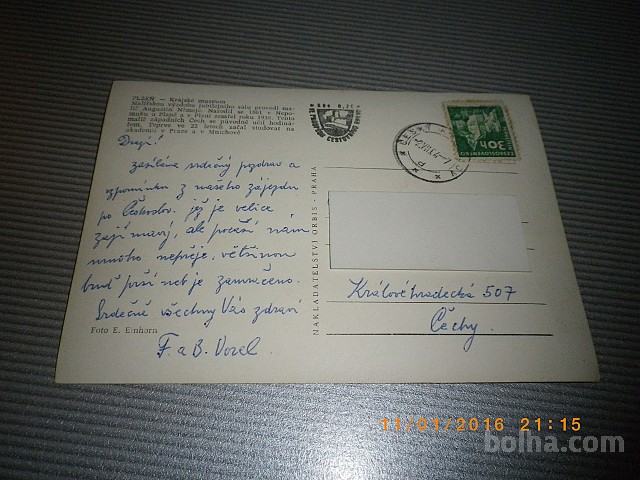 PLZEŇ — Krajské museum
Malířskou výzdobu jubilejního sálu provedl ma-
líř Augustin Němejc. Narodil se 1861 v Nepo-
muku a zemřel roku 1938. Tento
malíř západních Čech se původně učil hodiná-
řem. Teprve ve 22 letech začal studovat na
akademii v Praze a v Mnichově
Drazí!
zasíláme srdečný pozdrav a
vzpomínku z našeho zájezdu
po Českoslov. jež je velice
zajímavý, ale počasí nám
mnoho nepřeje, většinou
buď prší neb je zamračeno.
Srdečně všechny Vás zdraví
F. a B. Vozel.
Foto E. Einhorn
NAKLADATELSTVÍ ORBIS - PRAHA
ČESKÁ
30h
ČESKOSLOVENSKO
Královéhradecká 507
Čechy.
11/01/2016 21:15
bolha.com